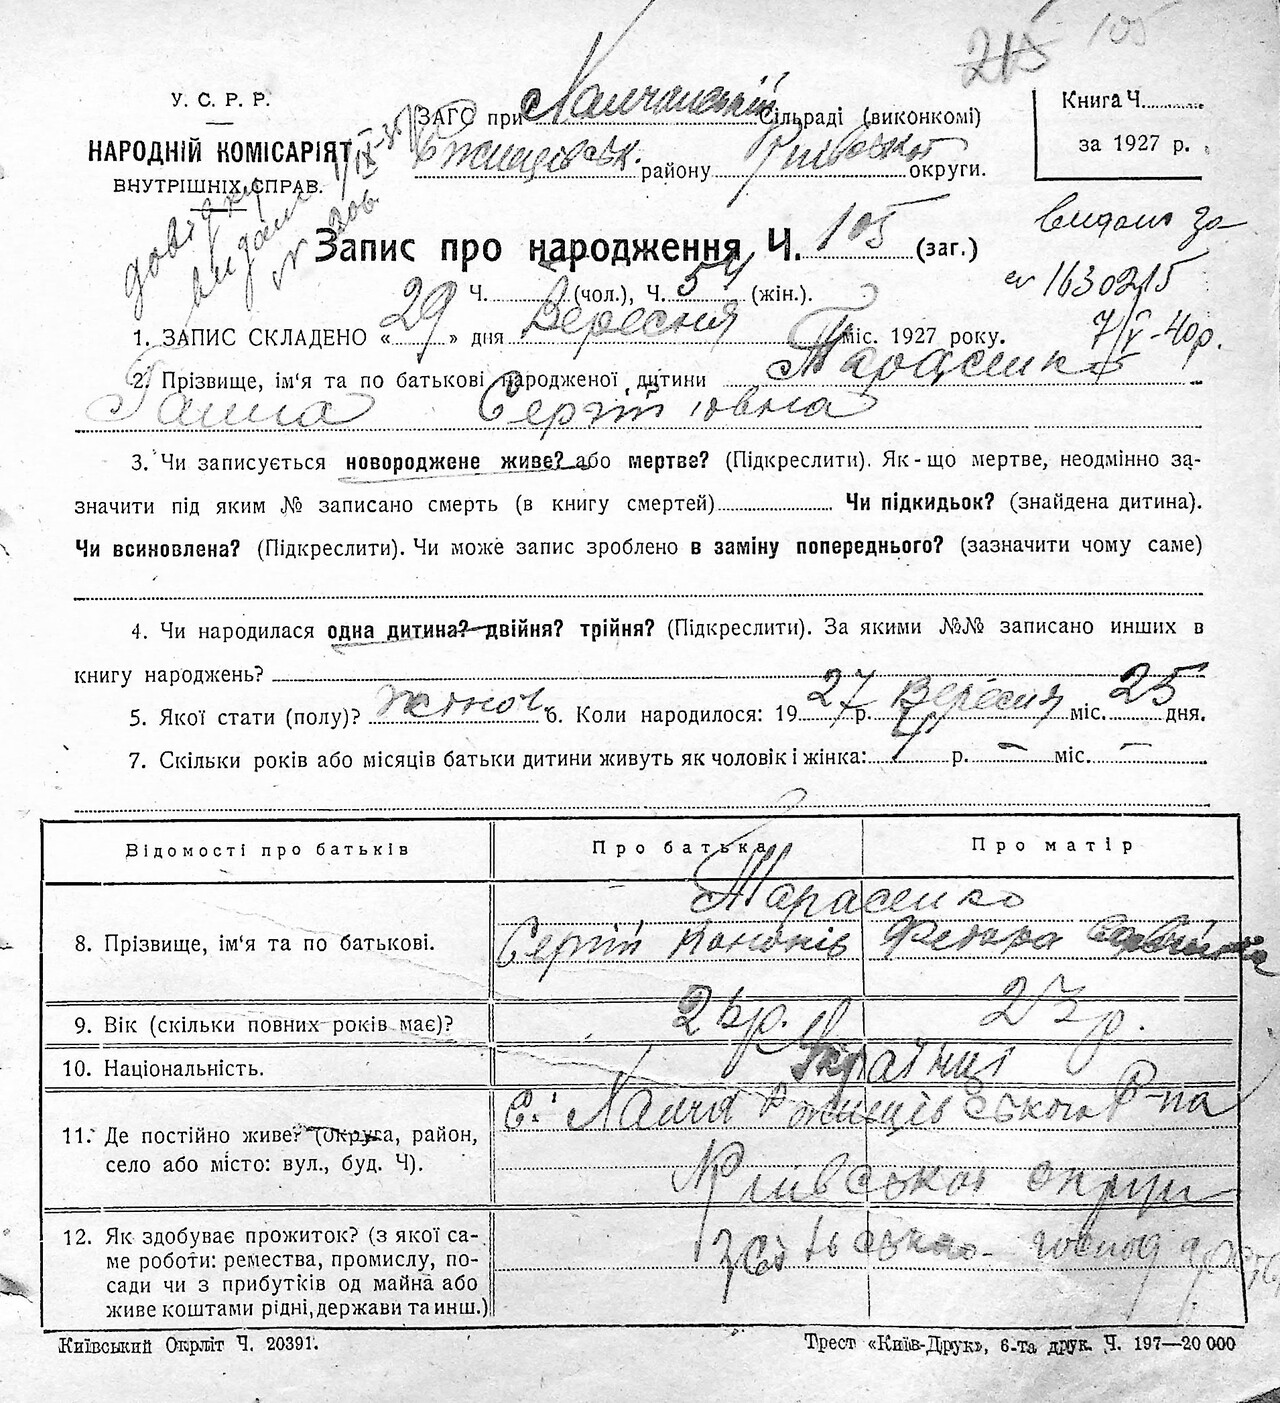 215 105
У. С. Р. Р.
НАРОДНІЙ КОМІСАРІЯТ
ВНУТРІШНІХ СПРАВ.
ЗАГС при Халчанській Сільраді (виконкомі)
Ржищівськ. району Київської округи.
Книга Ч.
за 1927 р.
довідку
видано
Запис про народження Ч. 105 (заг.)
видано за
№ 1630215
7/V-40р.
Ч. (чол.), Ч. 54 (жін.).
1. ЗАПИС СКЛАДЕНО « 29 » дня Вересня міс. 1927 року.
2. Прізвище, ім'я та по батькові народженої дитини Тарасенко
Ганна Сергіївна
3. Чи записується новороджене живе? або мертве? (Підкреслити). Як-що мертве, неодмінно за-
значити під яким № записано смерть (в книгу смертей) Чи підкидьок? (знайдена дитина).
Чи всиновлена? (Підкреслити). Чи може запис зроблено в заміну попереднього? (зазначити чому саме)
4. Чи народилася одна дитина? двійня? трійня? (Підкреслити). За якими №№ записано инших в
книгу народжень?
5. Якої стати (полу)? жіноч. 6. Коли народилося: 1927 р. Вересня міс. 25 дня.
7. Скільки років або місяців батьки дитини живуть як чоловік і жінка: 4 р. — міс. —
Відомості про батьків Про батька Про матір
Тарасенко
8. Прізвище, ім'я та по батькові. Сергій Кононів Федора
9. Вік (скільки повних років має)? 26р. 23р.
10. Національність. Українці
11. Де постійно живе? (округа, район, с. Халча Ржищівського Р-на
село або місто: вул., буд. Ч). Київської округи
12. Як здобуває прожиток? (з якої са- з сільського господарства
ме роботи: ремества, промислу, по-
сади чи з прибутків од майна або
живе коштами рідні, держави та инш.)
Київський Окрліт Ч. 20391. Трест «Київ-Друк», 6-та друк. Ч. 197—20 000